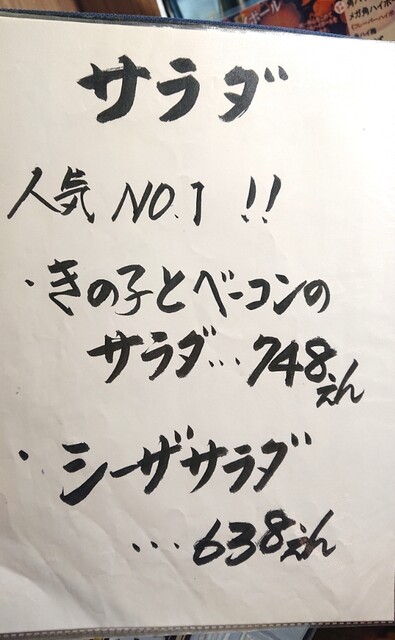 サラダ
人気 NO.1 !!
・きの子とベーコンの
サラダ…748えん
・シーザサラダ
…638えん
メガ角ハイボ